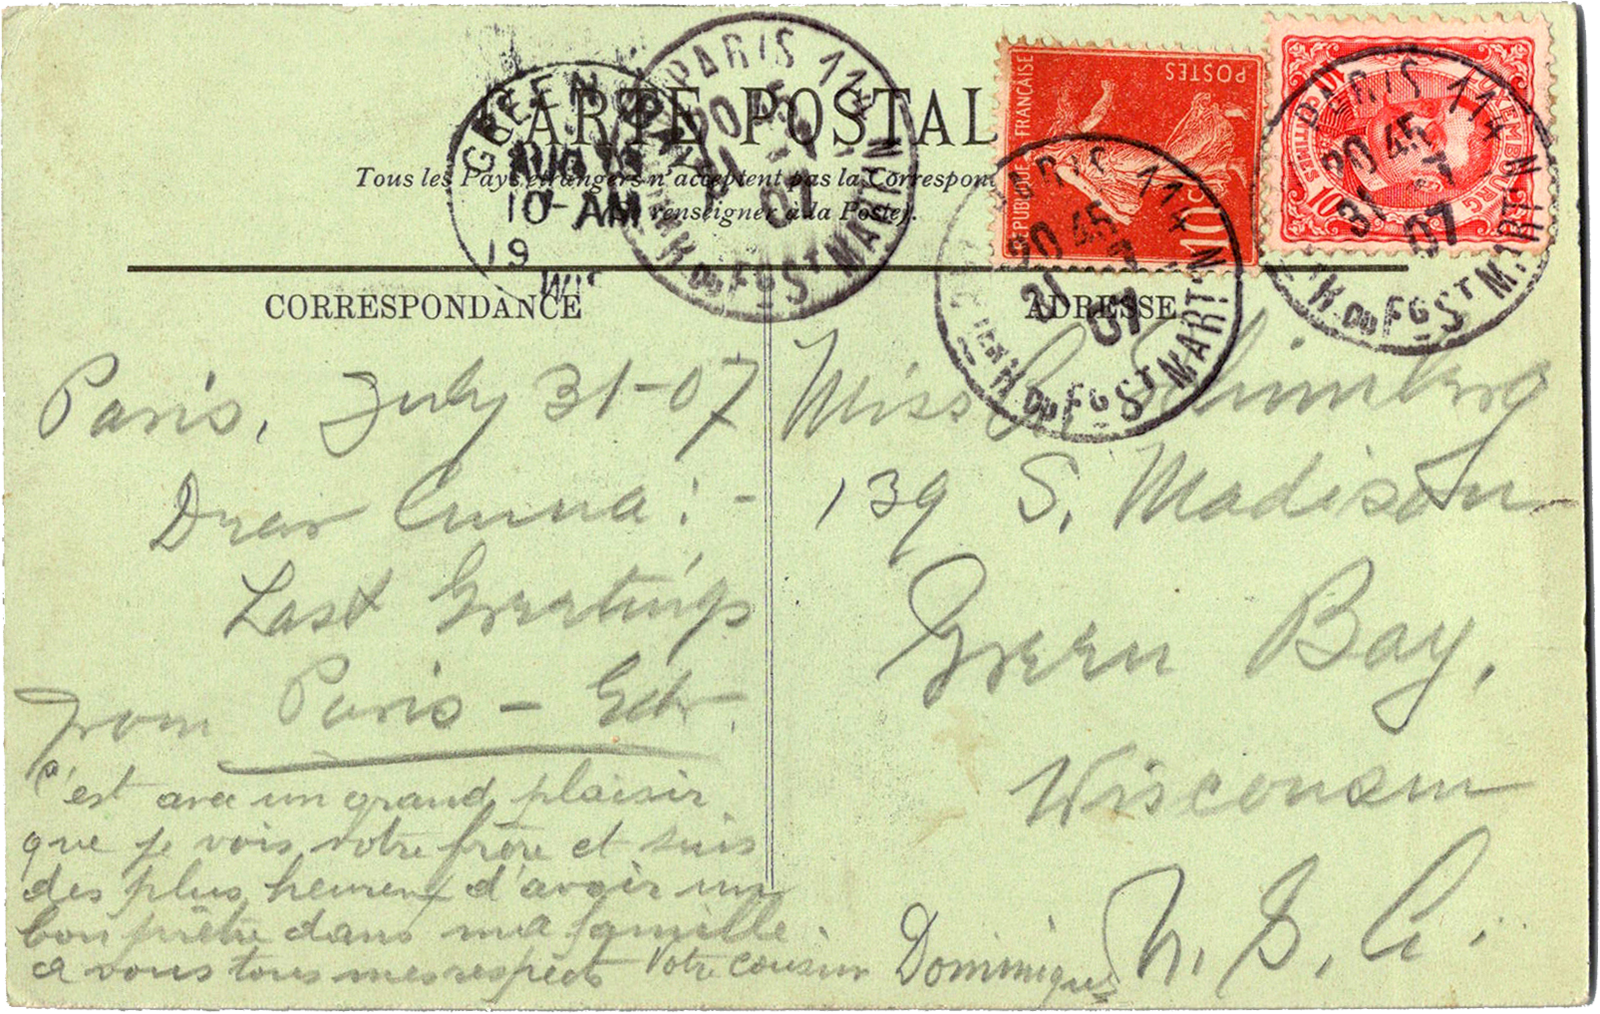 CARTE POSTAL
Tous les Pays étrangers n'acceptent pas la Correspon
renseigner à la Poste).
GREEN BAY
AUG
10-AM
19
WIS
PARIS 114
20 45
31 -7
07
R. DU FG ST MARTIN
REPUBLIQUE FRANÇAISE
POSTES
10
PARIS 114
20 45
31 7
07
R. DU FG ST MARTIN
LUXEMBOURG
10
PARIS 114
20 45
31 -7
07
R. DU FG ST MARTIN
CORRESPONDANCE
ADRESSE
Paris, July 31-07
Dear Anna! -
Last Greetings
from Paris -
C'est avec un grand plaisir
que je vois votre frère et suis
des plus heureux d'avoir un
bon prêtre dans ma famille.
à vous tous mes respects Votre cousin Dominique
Miss
139 S. Madison
Green Bay,
Wisconsin